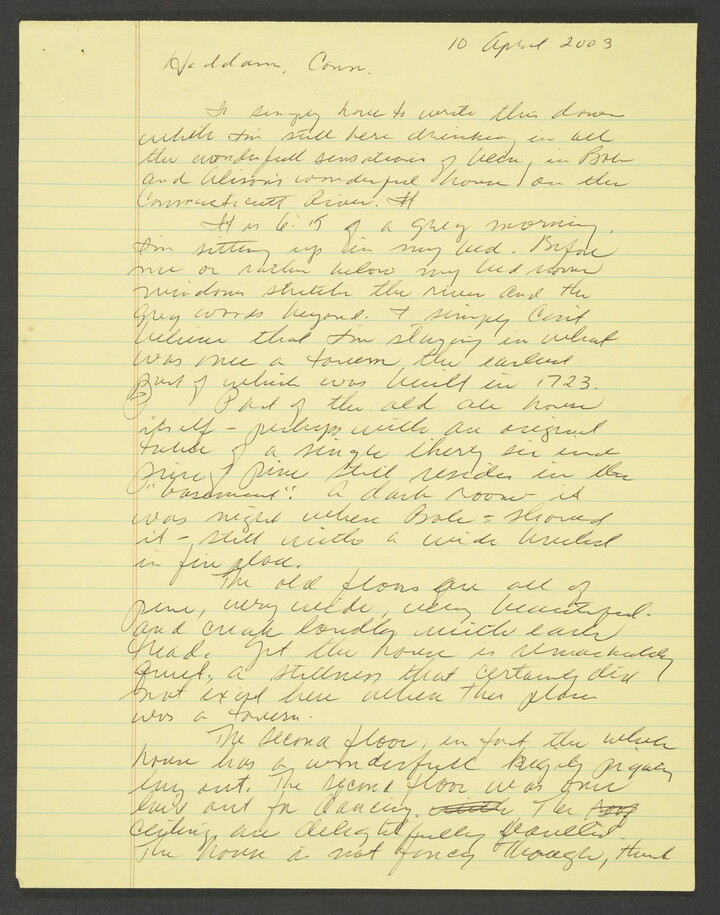 10 April 2003
Haddam, Conn.
I simply have to write this down
while I'm still here drinking in all
the wonderful sensations of being in Bob
and Alison's wonderful house on the
Connecticutt River.
It is 6:15 of a grey morning.
I'm sitting up in my bed. Before
me or rather below my bedroom
windows stretch the river and the
grey woods beyond. I simply can't
believe that I'm staying in what
was once a tavern the earliest
part of which was built in 1723.
Part of the old ale house
itself – perhaps with an original
table of a single
piece of pine still resides in the
"basement". A dark room – it
was night when Bob showed
it – still with a wide
in fire place.
The old floors are all of
pine, very wide, very beautiful
and creak loudly with each
tread. Yet the house is remarkably
quiet, a stillness that certainly did
not exist here when this place
was a tavern.
The second floor, in fact the whole
house has a wonderfull
lay out. The second floor was once
laid out for dancing. The
ceilings are delightfully
The house is not fancy though, that